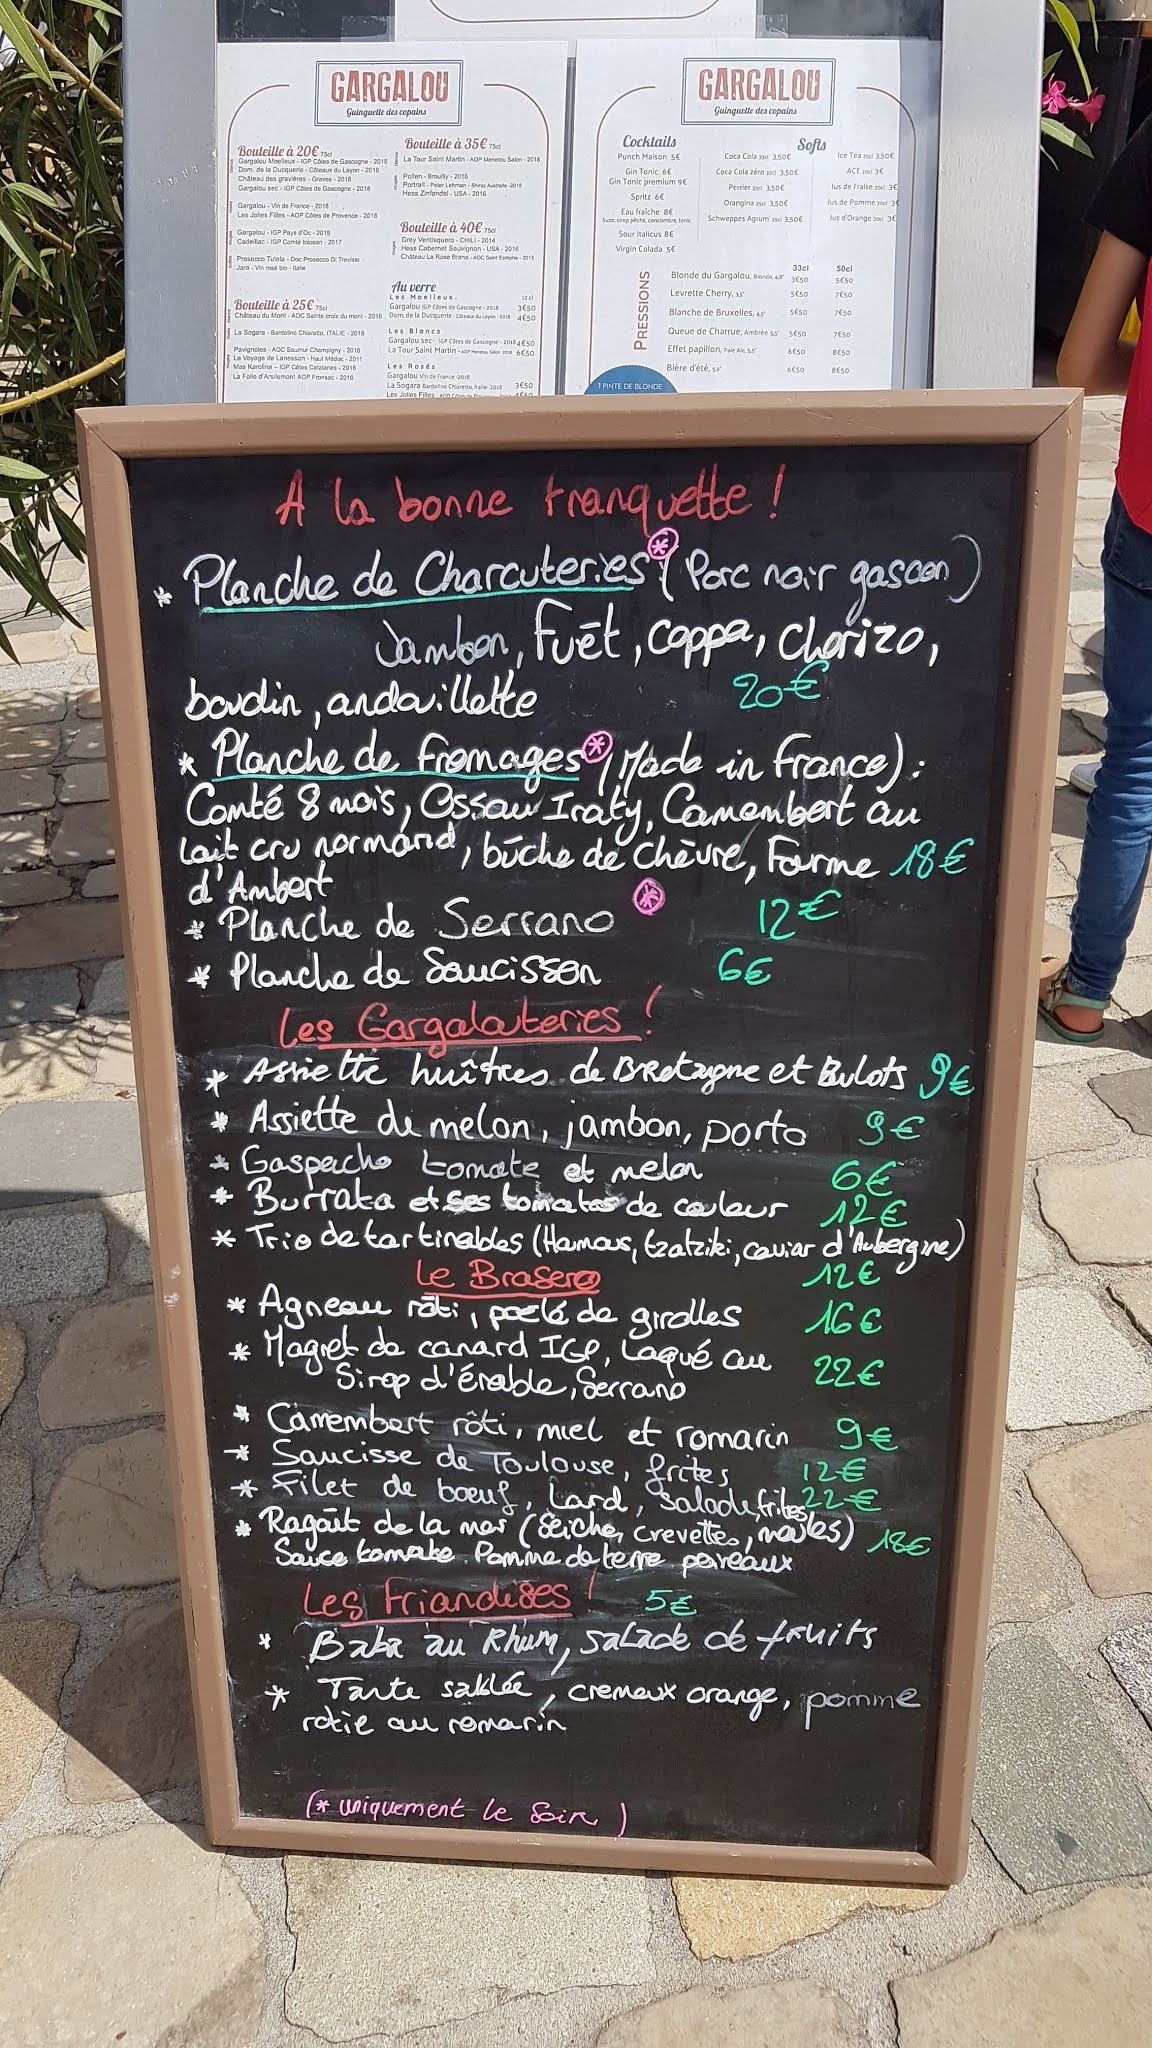 GARGALOU
Guinguette des copains
Bouteille à 20€ 75cl
Gargalou Moelleux - IGP Côtes de Gascogne - 2018
Dom. de la Ducquerie - Côteaux du Layon - 2018
Château des gravières - Graves - 2018
Gargalou sec - IGP Côtes de Gascogne - 2018
Gargalou - Vin de France - 2018
Les Jolies Filles - AOP Côtes de Provence - 2018
Gargalou - IGP Pays d'Oc - 2019
Cadeillac - IGP Comté tolosan - 2017
Prosecco Tutela - Doc Prosecco Di Trevisio
Jara - Vin rosé bio - Italie
Bouteille à 25€ 75cl
Château du Mont - AOC Sainte croix du mont - 2016
La Sogara - Bardolino Chiaretto, ITALIE - 2018
Pavignoles - AOC Saumur Champigny - 2016
Le Voyage de Lanessan - Haut Médoc - 2011
Mas Karolina - IGP Côtes Catalanes - 2016
La Folie d'Arsilemont AOP Fronsac - 2016
Bouteille à 35€ 75cl
La Tour Saint Martin - AOP Menetou Salon - 2018
Pollen - Brouilly - 2016
Portrait - Peter Lehman - Shiraz Australie - 2015
Hess Zinfandel - USA - 2016
Bouteille à 40€ 75cl
Grey Ventisquero - CHILI - 2014
Hess Cabernet Sauvignon - USA - 2016
Château La Rose Brana - AOC Saint Estèphe - 2015
Au verre
Les Moelleux 12 cl
Gargalou IGP Côtes de Gascogne - 2018 3€50
Dom. de la Ducquerie - Côteaux du Layon - 2018 4€50
Les Blancs
Gargalou sec- IGP Côtes de Gascogne - 2018 4€50
La Tour Saint Martin - AOP Menetou Salon 2018 6€50
Les Rosés
Gargalou Vin de France - 2018
La Sogara Bardolino Chiaretto, Italie- 2018 3€50
Les Jolies Filles 4€50
GARGALOU
Guinguette des copains
Cocktails
Punch Maison 5€
Gin Tonic 6€
Gin Tonic premium 9€
Spritz 6€
Eau fraîche 8€
Suze, sirop pêche, concombre, tonic
Sour Italicus 8€
Virgin Colada 5€
Softs
Coca Cola 33cl 3,50€
Coca Cola zéro 33cl 3,50€
Perrier 33cl 3,50€
Orangina 25cl 3,50€
Schweppes Agrum' 25cl 3,50€
Ice Tea 25cl 3,50€
ACE 20cl 3€
Jus de Fraise 20cl 3€
Jus de Pomme 20cl 3€
Jus d'Orange 20cl 3€
PRESSIONS
33cl 50cl
Blonde du Gargalou, Blonde, 4,8° 3€50 5€50
Levrette Cherry, 3,5° 5€50 7€50
Blanche de Bruxelles, 4,5° 5€50 7€50
Queue de Charrue, Ambrée 5,5° 5€50 7€50
Effet papillon, Pale Ale, 5,5° 6€50 8€50
Bière d'été, 5,9° 6€50 8€50
1 PINTE DE BLONDE
A la bonne franquette !
* Planche de Charcuteries * (Porc noir gascon)
Jambon, Fuët, Coppa, Chorizo,
boudin, andouillette 20€
* Planche de fromages * (Made in France) :
Comté 8 mois, Ossau Iraty, Camembert au
lait cru normand, bûche de Chèvre, Fourme 18€
d'Ambert
* Planche de Serrano * 12€
* Planche de Saucisson 6€
Les Gargalouteries !
* Assiette huîtres de Bretagne et Bulots 9€
* Assiette de melon, jambon, porto 9€
* Gaspacho tomate et melon 6€
* Burrata et ses tomates de couleur 12€
* Trio de tartinables (Houmous, tzatziki, caviar d'Aubergine)
Le Brasero 12€
* Agneau rôti, poêlé de girolles 16€
* Magret de canard IGP, Laqué au
Sirop d'érable, Serrano 22€
* Camembert rôti, miel et romarin 9€
* Saucisse de Toulouse, frites 12€
* Filet de boeuf, Lard, Salade, frites 22€
* Ragoût de la mer (Seiche, crevettes, moules) 18€
Sauce tomate. Pomme de terre poireaux
Les Friandises ! 5€
* Baba au Rhum, salade de fruits
* Tarte sablée, cremeux orange, pomme
rotie au romarin
(* uniquement le Soir )